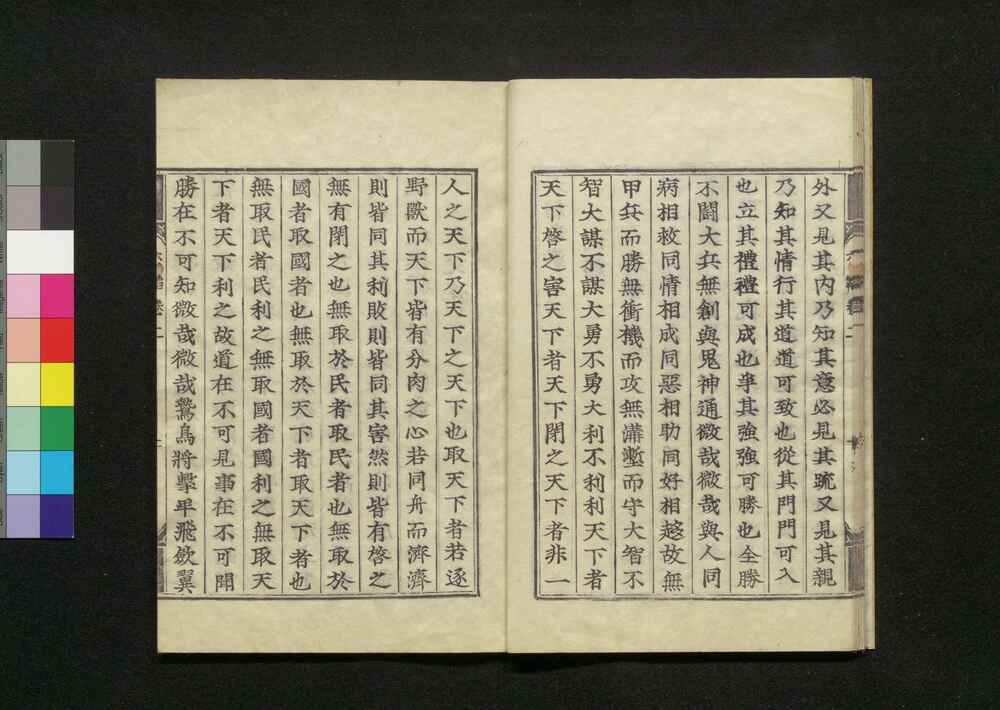 外又見其內乃知其意必見其疏又見其親
乃知其情行其道道可致也從其門門可入
也立其禮禮可成也爭其強強可勝也全勝
不鬪大兵無創與鬼神通微哉微哉與人同
病相救同情相成同惡相助同好相趍故無
甲兵而勝無衝機而攻無溝壍而守大智不
智大謀不謀大勇不勇大利不利利天下者
天下啓之害天下者天下閉之天下者非一
人之天下乃天下之天下也取天下者若逐
野獸而天下皆有分肉之心若同舟而濟濟
則皆同其利敗則皆同其害然則皆有啓之
無有閉之也無取於民者取民者也無取於
國者取國者也無取於天下者取天下者也
無取民者民利之無取國者國利之無取天
下者天下利之故道在不可見事在不可聞
勝在不可知微哉微哉鷙鳥將擊卑飛斂翼